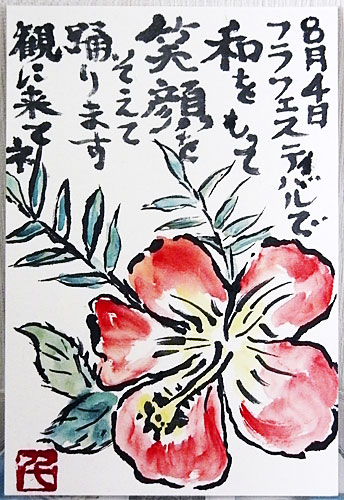 8月4日
フラフェスティバルで
和をもって
笑顔を
そえて
踊ります
観に来てネ